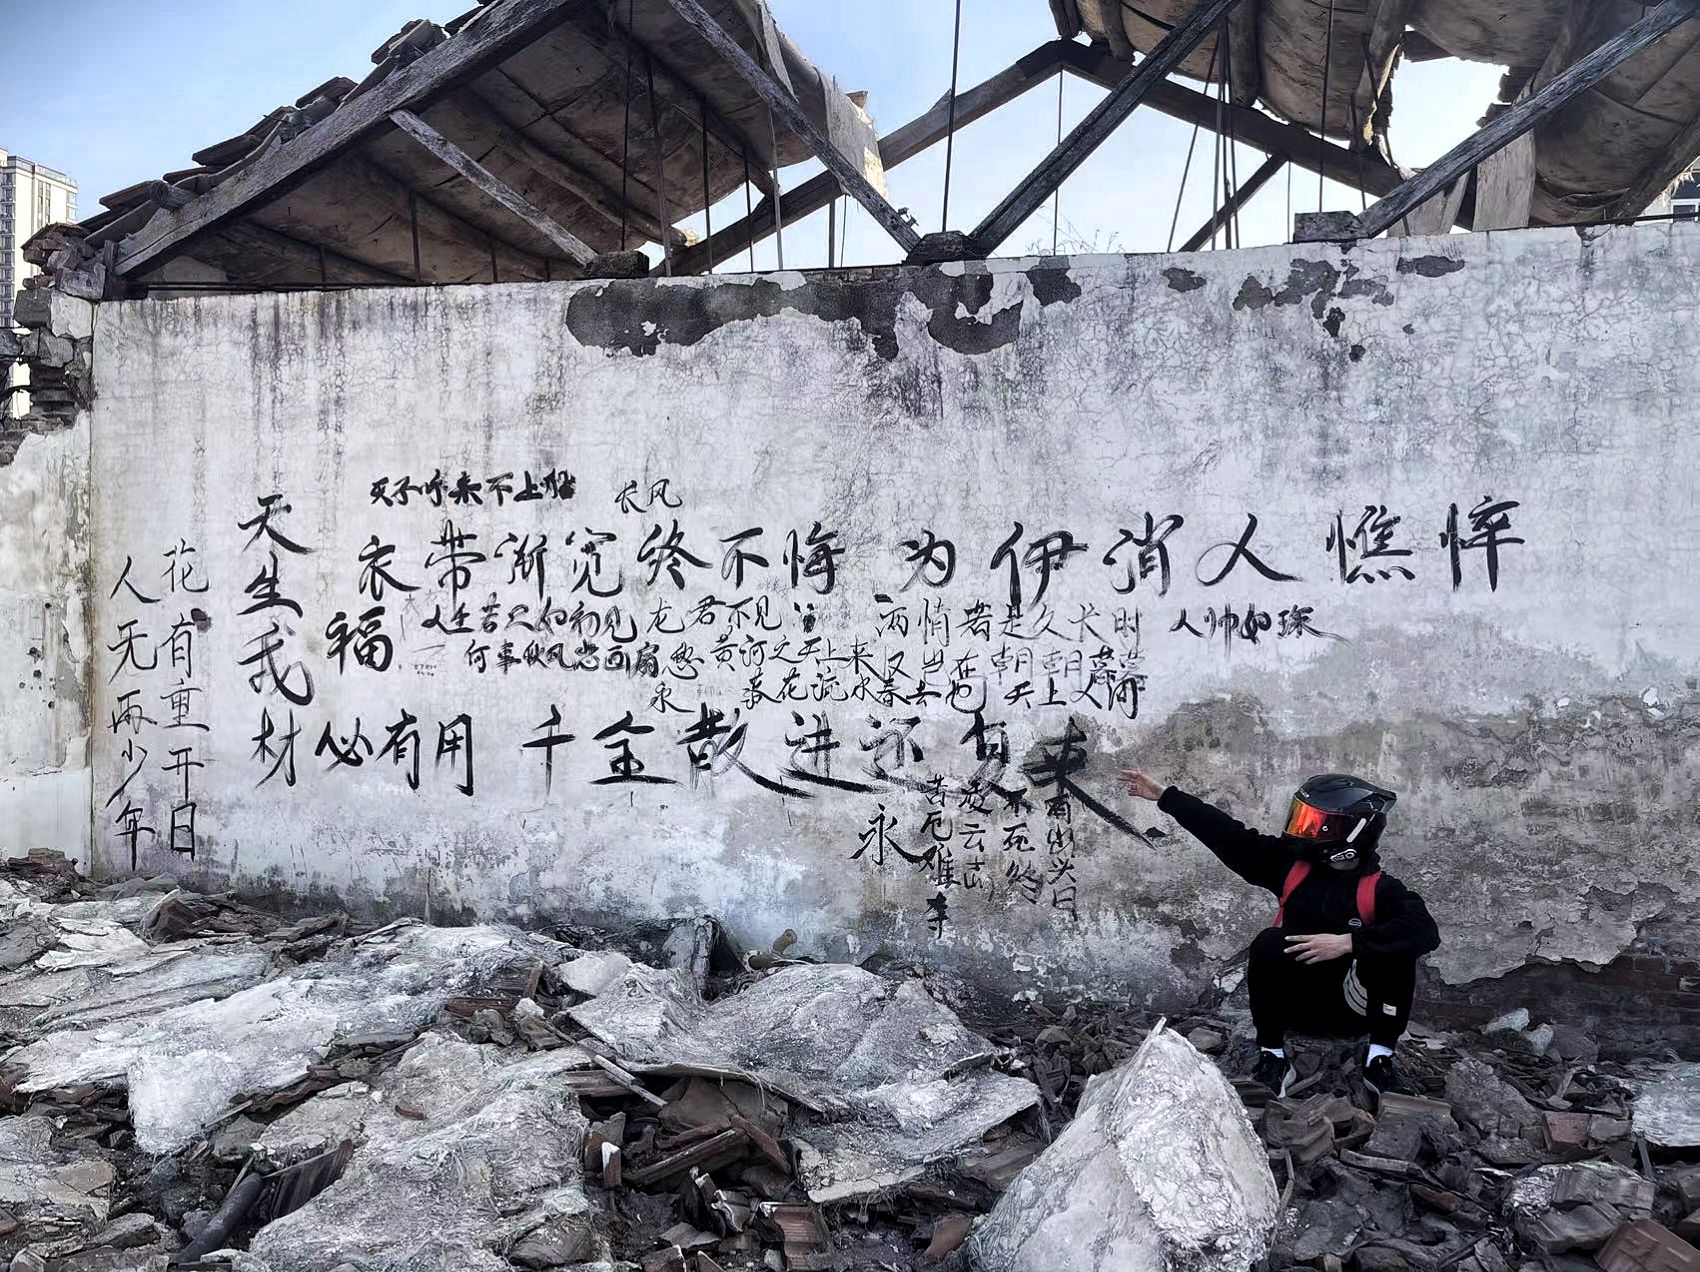 天子呼来不上船
长风
衣带渐宽终不悔 为伊消人憔悴
天生我
材必有用 千金散进还复来
福
花有重开日
人无再少年
人生若只如初见
何事秋风悲画扇
龙
君不见
黄河之天上来
落花流水春去也
两情若是久长时
又岂在朝朝暮暮
天上人间
人帅如琛
愁
永
永
苦厄难奪
凌云志
不死终
有出头日